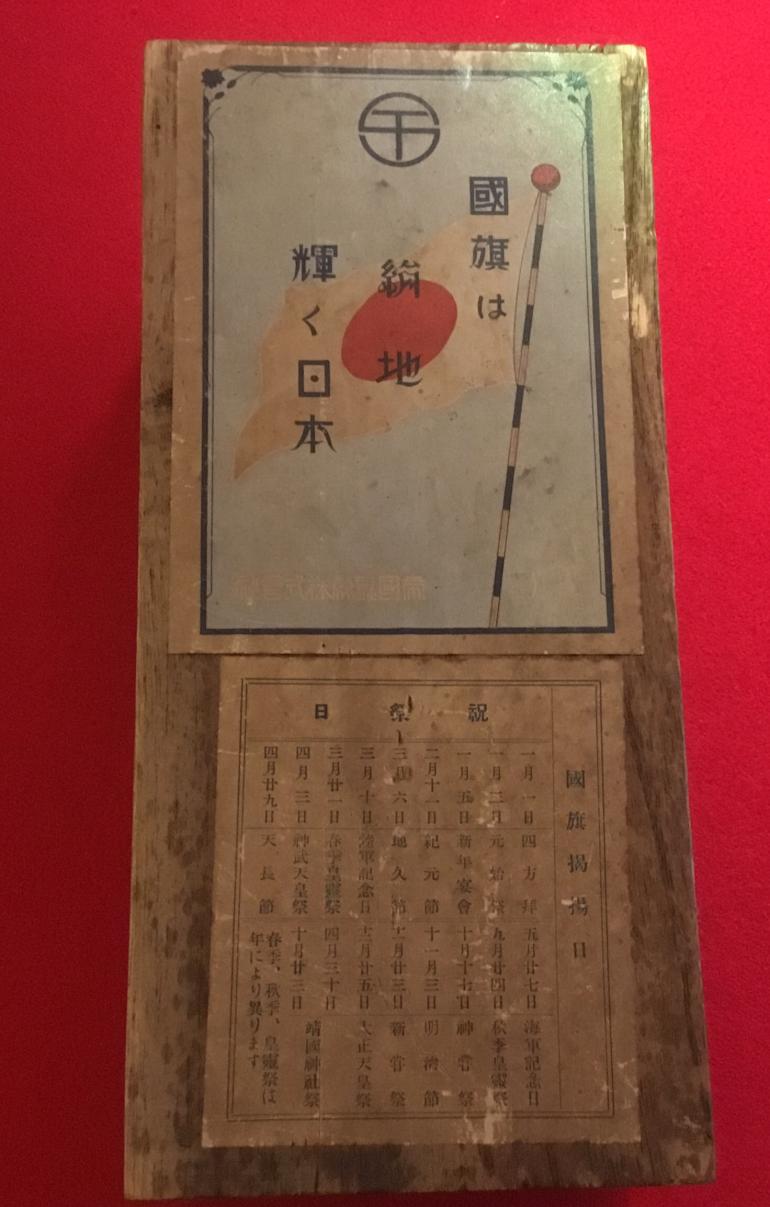 國旗は
絹地
輝く日本
國旗揭揚日
祝祭日
一月一日 四方拜
一月三日 元始祭
一月五日 新年宴會
二月十一日 紀元節
三月六日 地久節
三月十日 陸軍記念日
三月廿一日 春季皇靈祭
四月三日 神武天皇祭
四月廿九日 天長節
五月廿七日 海軍記念日
九月廿四日 秋季皇靈祭
十月十七日 神嘗祭
十一月三日 明治節
十一月廿三日 新嘗祭
十二月廿五日 大正天皇祭
四月三十日
十月廿三日
靖國神社祭
春季、秋季、皇靈祭は
年により異ります